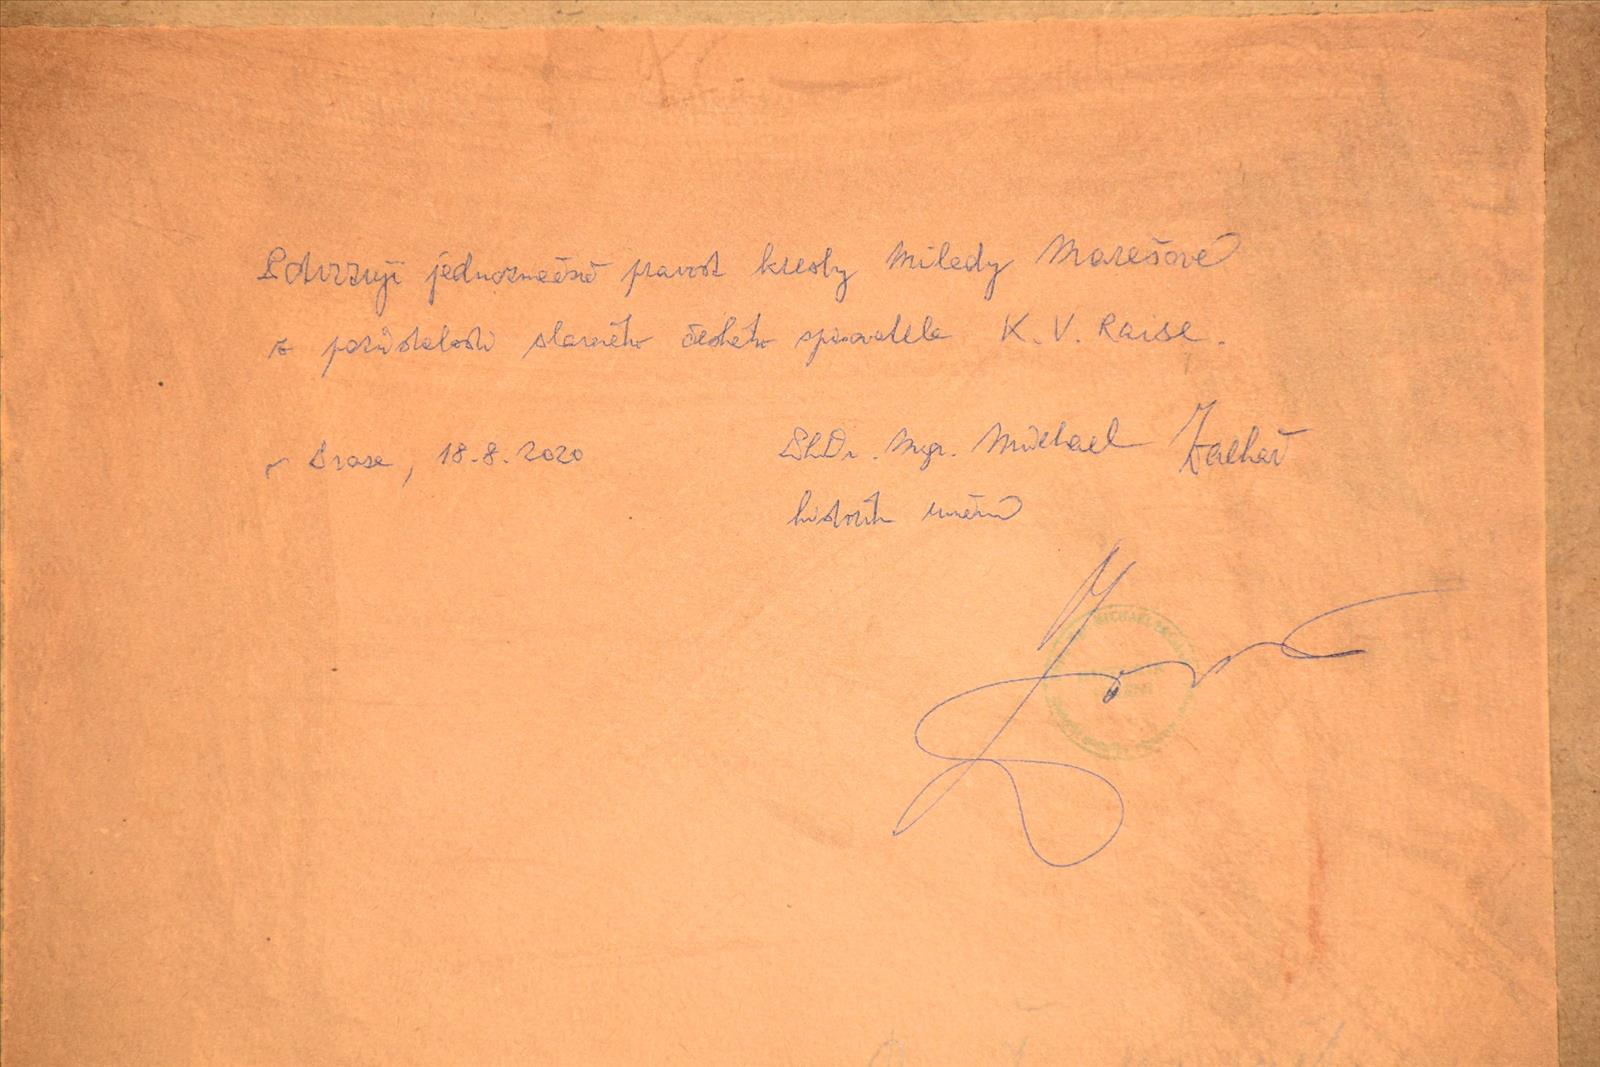 Potvrzuji jednoznačně pravost kresby Milady Marešové
z pozůstalosti slavného českého spisovatele K. V. Raise.
v Praze, 18.8.2020
PhDr. Mgr. Michael Zachař
historik umění
MICHAEL